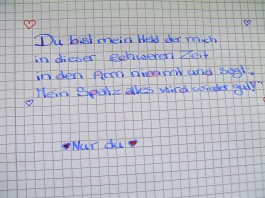 Du bist mein Held der mich
in dieser schweren Zeit
in den Arm nimmt und sagt.
"Mein Spatz alles wird wieder gut!"
Nur du